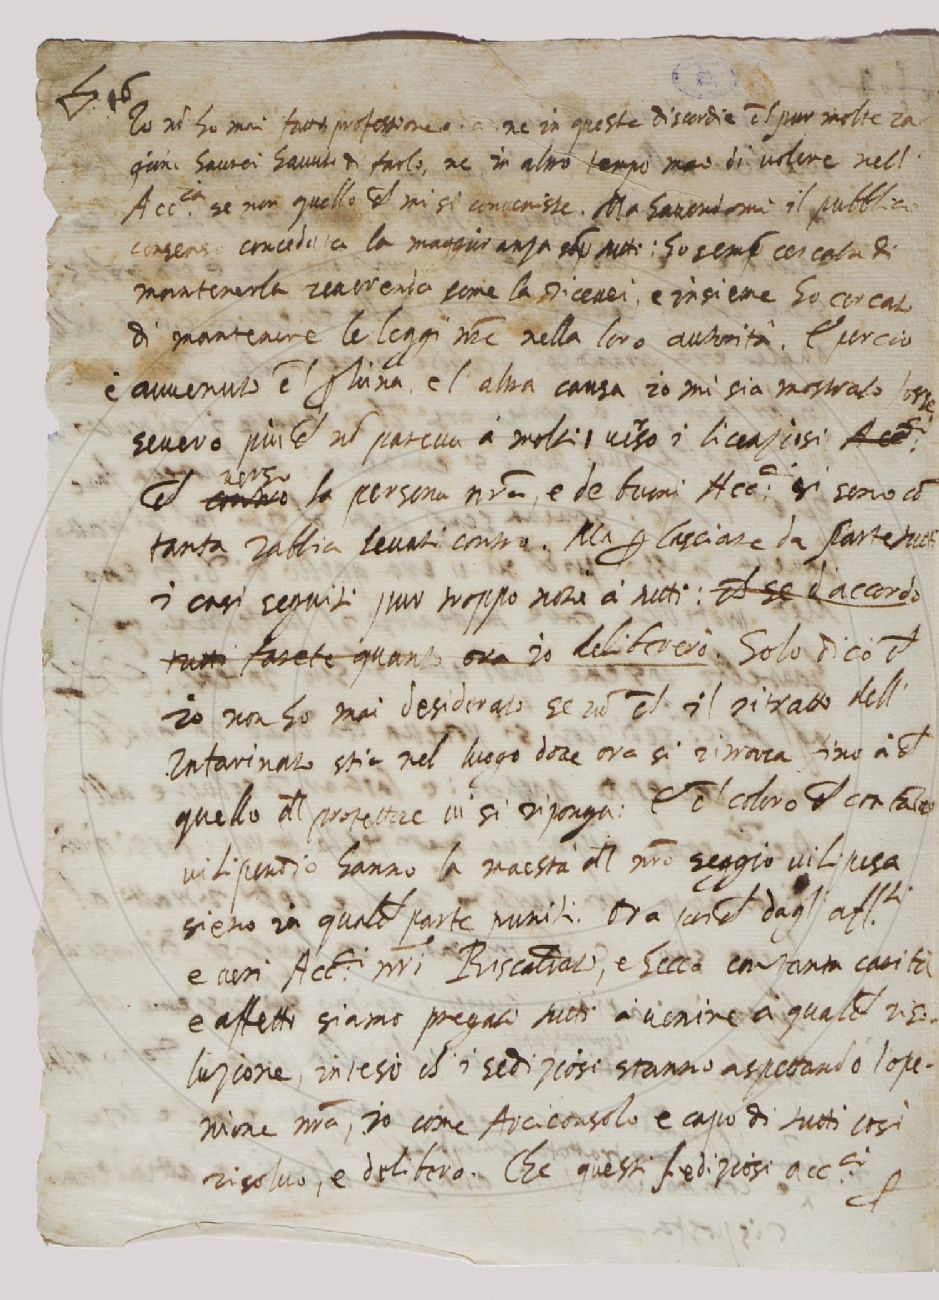 16
Io nõ ho mai fatto professione ne in queste discordie c̃h pur molte ra
gioni haurei hauuto di farlo, ne in altro tempo mai di uolere nell'
Acc.ia se non quello c̃h mi si conuenisse. Ma hauendomi il pubblico
consenso conceduta la maggioranza sop̃ tutti: ho semp̃ cercato di
mantenerla reuerenda come la riceuei, e insieme ho cercato
di mantenere le leggi nr̃e nella loro autorità. E perciò
è auuenuto c̃h e l'altra causa io mi sia mostrato forse
seuero più c̃h nõ pareua à molti, uerso i licenziosi Acc.ci
c̃h uerso la persona nr̃a, e de buoni Acc.ci si sono cõ
tanta rabbia leuati contro. Ma p lasciare da parte tutti
i casi seguiti pur troppo noti à tutti: c̃h se d'accordo
tutti farete quanto ora io delibererò. Solo dico c̃h
io non ho mai desiderato se nõ c̃h il ritratto dell'
Infarinato stia nel luogo doue ora si ritroua fino à c̃h
quello dl̃ protettore ui si riponga: E c̃h coloro c̃h con tanto
uilipendio hanno la maestà dl̃ nr̃o seggio uilipesa
sieno in qualc̃h parte puniti. Ora poic̃h dagli aff.ti
e ueri Acc.ci nr̃i Riscaldato, e Secco con tanta carità
e affetti siamo pregati tutti à uenire à qualc̃h riso-
luzione, inteso c̃h i sediziosi stanno aspettando l'ope-
nione nr̃a, io come Arciconsolo e capo di tutti così
risoluo, e delibero. Che questi sediziosi acc.ci